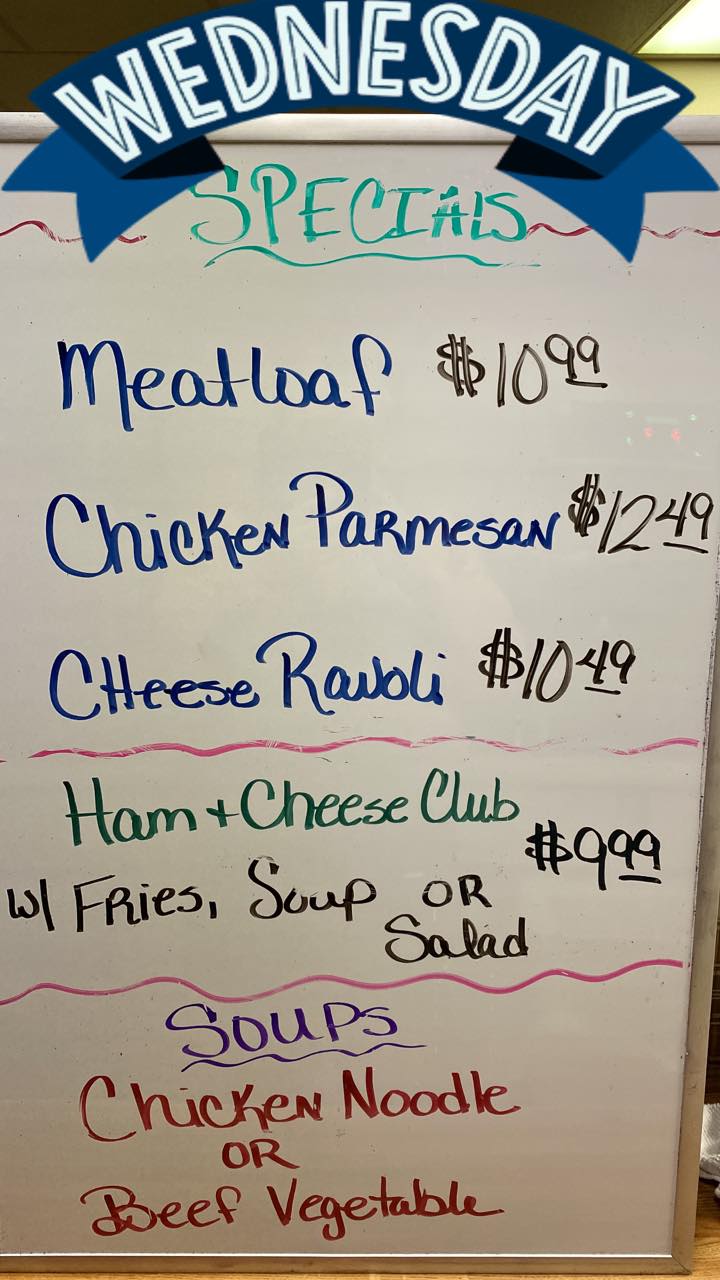 WEDNESDAY
SPECIAlS
Meatloaf $10.99
Chicken Parmesan $12.49
Cheese Ravoli $10.49
Ham + Cheese Club
$9.99
w/ Fries, Soup OR
Salad
Soups
Chicken Noodle
OR
Beef Vegetable